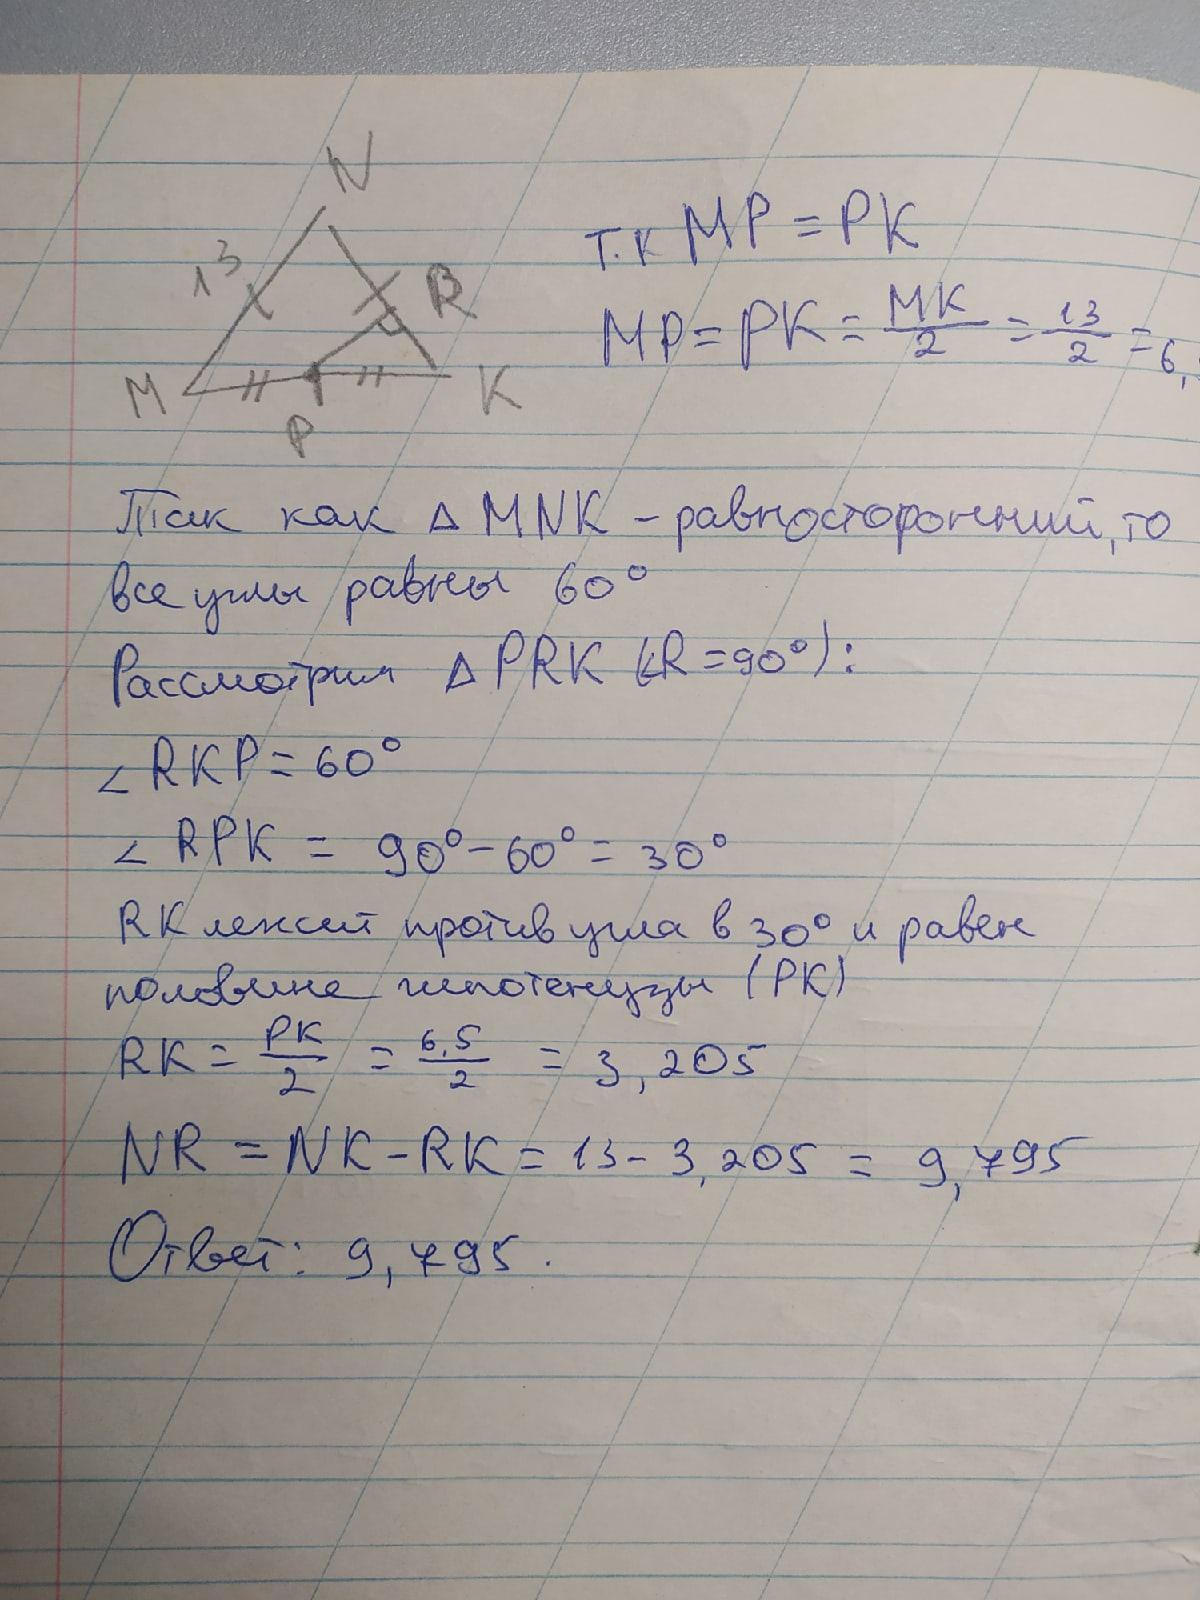 N
13
R
M
K
P
т.к MP = PK
MP = PK = MK/2 = 13/2 = 6,
Так как Δ MNK - равносторонний, то
все углы равны 60°
Рассмотрим Δ PRK (∠R = 90°):
∠ RKP = 60°
∠ RPK = 90° - 60° = 30°
RK лежит против угла в 30° и равен
половине гипотенузы (PK)
RK = PK/2 = 6,5/2 = 3,205
NR = NK - RK = 13 - 3,205 = 9,795
Ответ: 9,795.